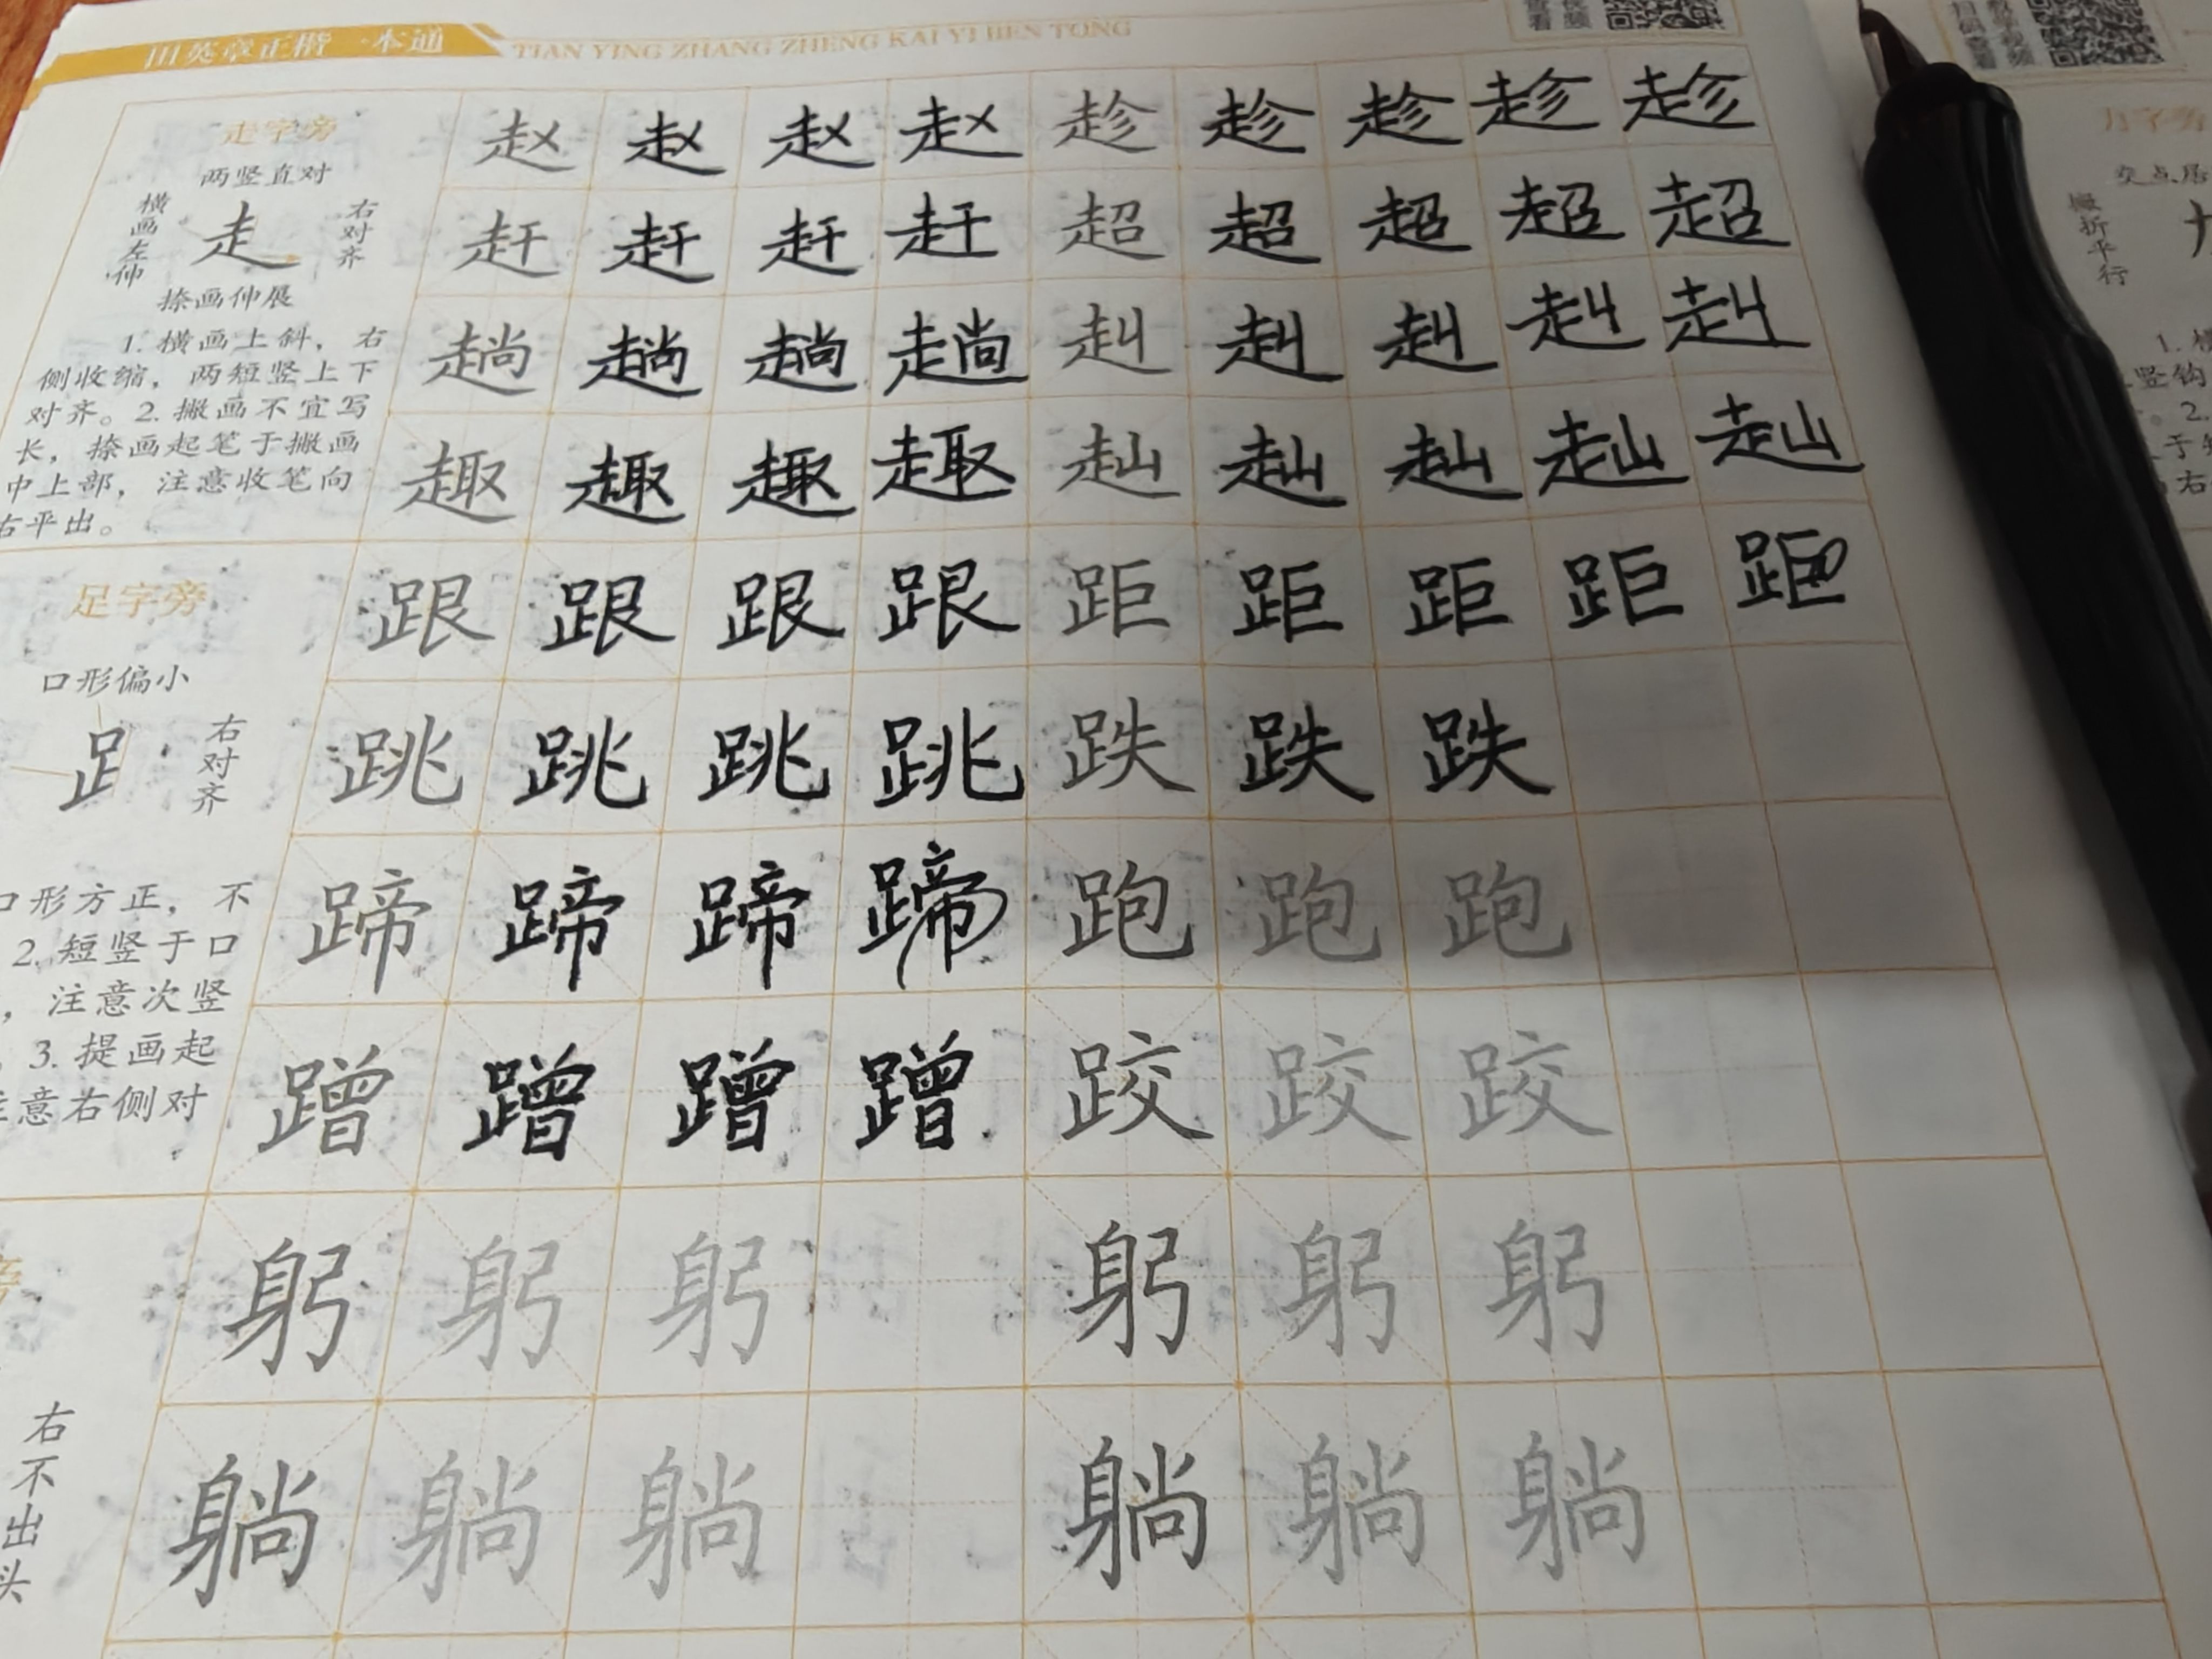 田英章正楷一本通 TIAN YING ZHANG ZHENG KAI YI BEN TONG
走字旁
两竖直对
横画左伸
走
右对齐
捺画伸展
1. 横画上斜，右
侧收缩，两短竖上下
对齐。2. 撇画不宜写
长，捺画起笔于撇画
中上部，注意收笔向
右平出。
赵 赵 赵 赵 趁 趁 趁 趁 趁
赶 赶 赶 赶 超 超 超 超 超
趟 趟 趟 趟 赳 赳 赳 赳 赳
趣 趣 趣 趣 赸 赸 赸 赸 赸
足字旁
口形偏小
右对齐
口形方正，不
2. 短竖于口
，注意次竖
3. 提画起
注意右侧对
跟 跟 跟 跟 距 距 距 距
跳 跳 跳 跳 跌 跌 跌
蹄 蹄 蹄 蹄 跑 跑 跑
蹭 蹭 蹭 蹭 跤 跤 跤
旁
右不出头
躬 躬 躬 躬 躬 躬
躺 躺 躺 躺 躺 躺
力字旁
撇折平行
1. 横
竖钩
。2.